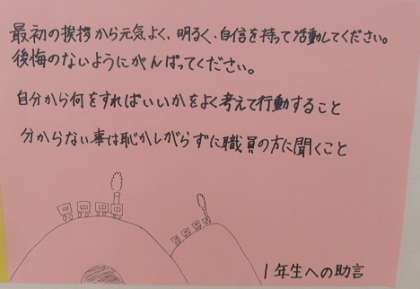 最初の挨拶から元気よく、明るく、自信を持って活動してください。
後悔のないようにがんばってください。
自分から何をすればいいかをよく考えて行動すること
分からない事は恥かしがらずに職員の方に聞くこと
1年生への助言